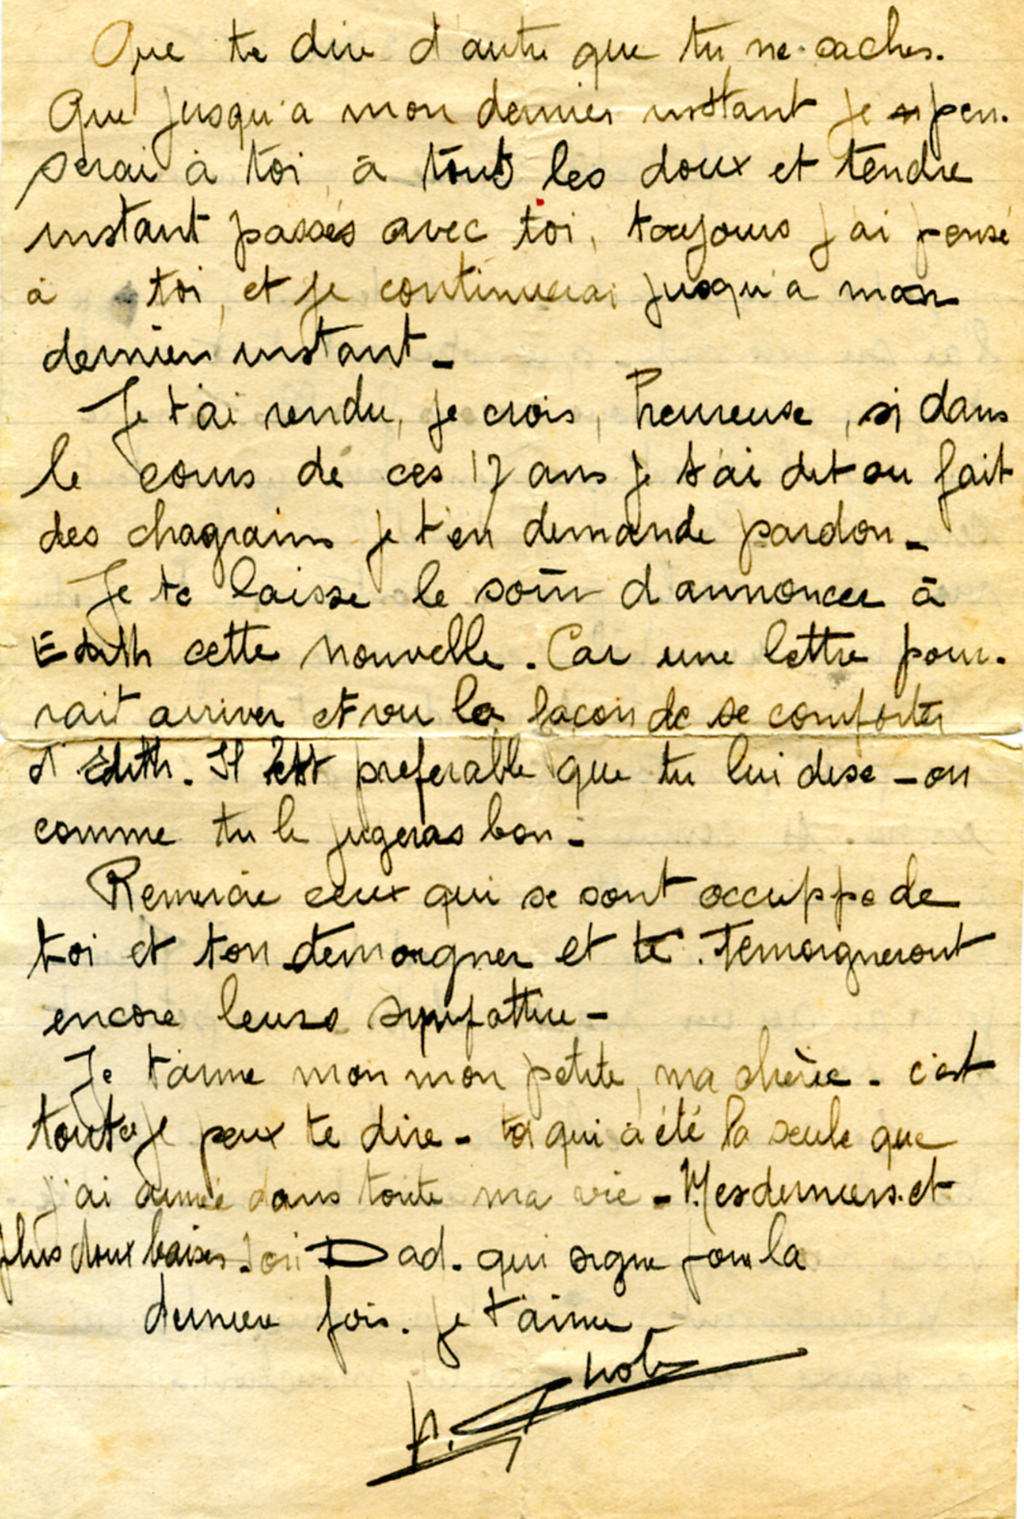 Que te dire d'autre que tu ne caches.
Que jusqu'a mon dernier instant je pen-
serai à toi, à tous les doux et tendre
instant passés avec toi, toujours j'ai pensé
à toi, et je continuerai jusqu'a mon
dernier instant _
Je t'ai rendu, je crois, heureuse, si dans
le cours de ces 17 ans je t'ai dit ou fait
des chagrains je t'en demande pardon _
Je te laisse le soin d'annoncer à
Edith cette nouvelle. Car une lettre pour-
rait arriver et vu la façon de se comforter
d'Edith. Il est preferable que tu lui dise _ ou
comme tu le jugeras bon _
Remercie ceux qui se sont occuppe de
toi et t'on temoigner et te temoigneront
encore leurs
Je t'aime mon mon petite, ma chèrie _ c'est
tout ce je peux te dire _ toi qui a été la seule que
j'ai aimée dans toute ma vie _ Mes derniers et
plus doux baisers. Dad. qui signe pour la
derniere fois. je t'aime